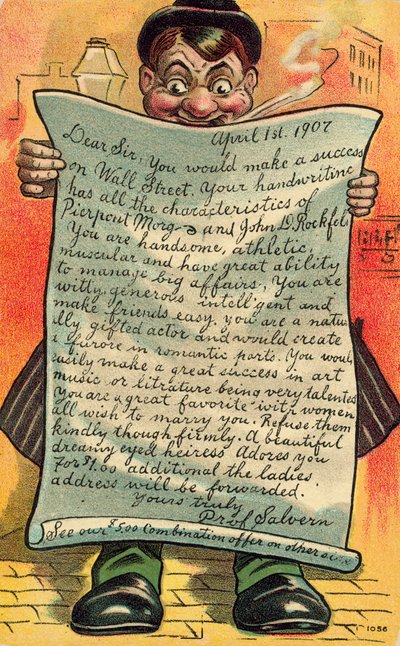 April 1st. 1907
Dear Sir, You would make a success
on Wall Street. Your handwriting
has all the characteristics of
Pierpont Morg- and John D. Rockfel
You are handsome, athletic,
muscular and have great ability
to manage big affairs, You are
witty, generous intelligent and
make friends easy. you are a natu
lly gifted actor and would create
a furore in romantic parts. You would
easily make a great success in art
music or litrature being very talented
You are a great favorite with women
all wish to marry you. Refuse them
kindly though firmly. A beautiful
dreamy eyed heiress adores you
for $1.00 additional the ladies'
address will be forwarded.
Yours truly
Prof Salvern
See our $5.00 Combination offer on other side
1056